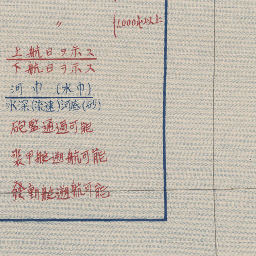 〃 1,000米以上
上航日ヲ示ス
下航日ヲ示ス
河巾(水巾)
水深(流速)河底(砂)
砲艦通過可能
装甲艇遡航可能
發動艇遡航可能